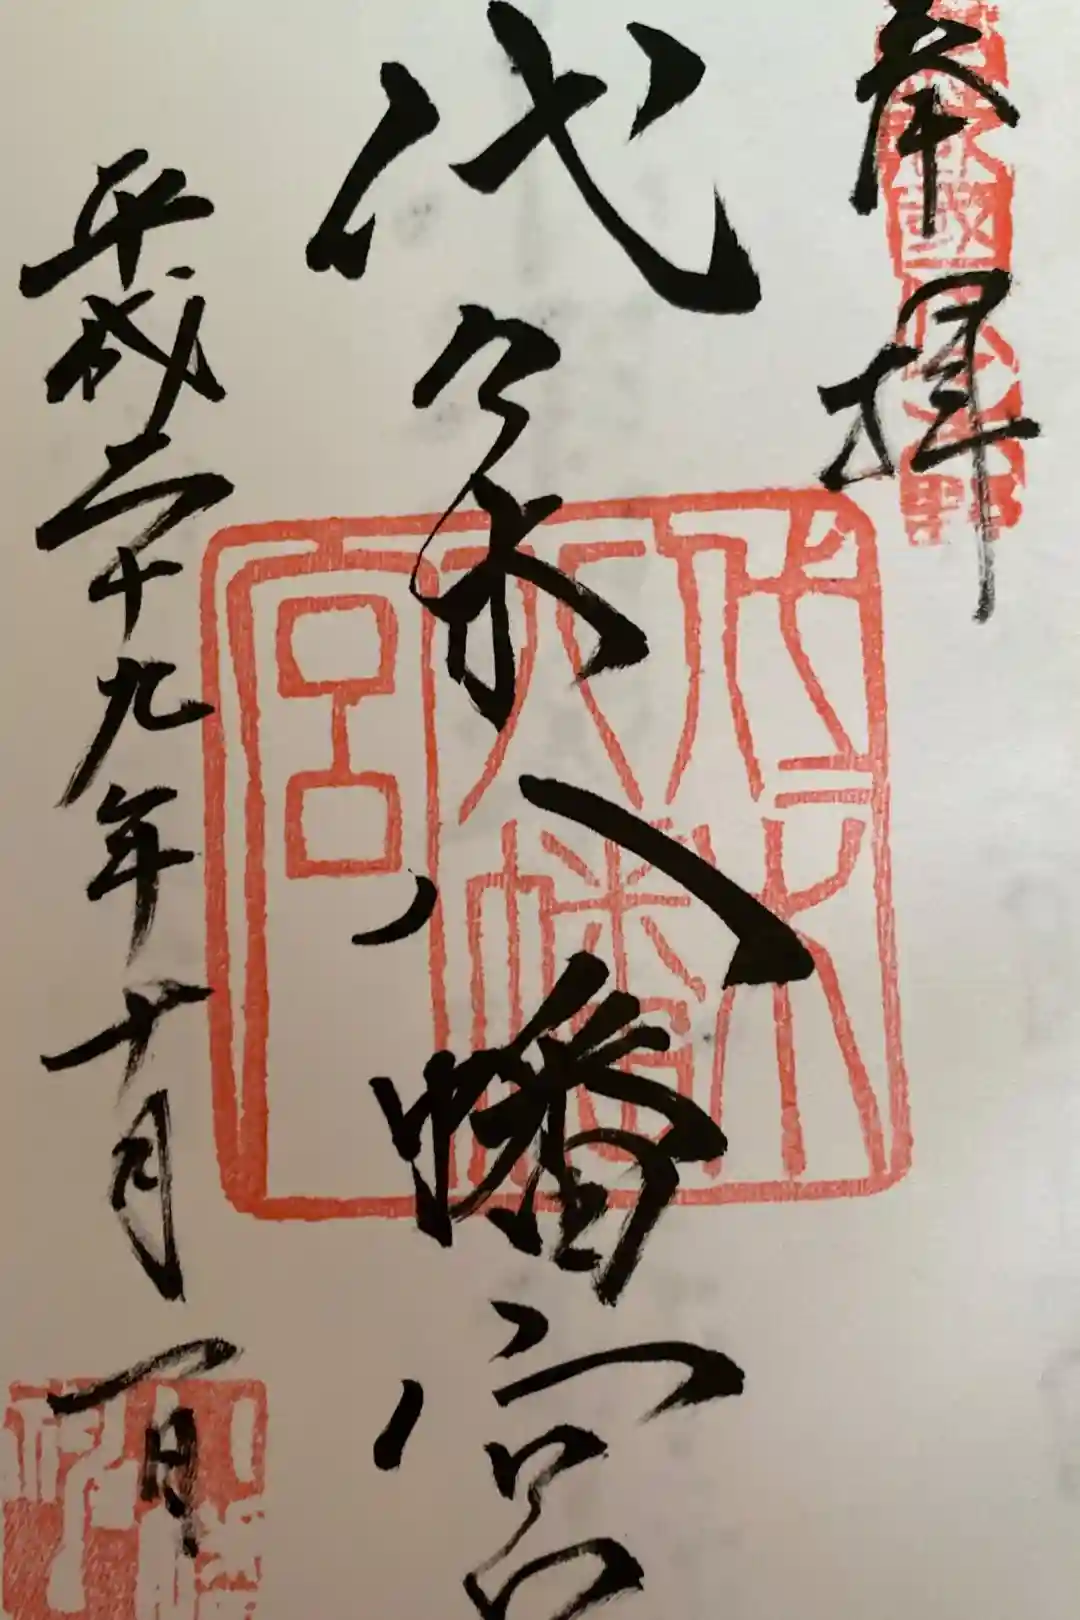 奉拝
代々木八幡宮
平成二十九年十月一日
代々木
八幡
宮